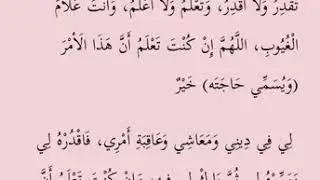 تَقْدِرُ وَلَا أَقْدِرُ، وَتَعْلَمُ وَلَا أَعْلَمُ، وَأَنْتَ عَلَّامُ
الْغُيُوبِ، اللَّهُمَّ إِنْ كُنْتَ تَعْلَمُ أَنَّ هَذَا الأَمْرَ
(وَيُسَمِّي حَاجَتَه) خَيْرٌ
لِي فِي دِينِي وَمَعَاشِي وَعَاقِبَةِ أَمْرِي، فَاقْدُرْهُ لِي
كُنْتَ تَعْلَمُ أَنَّ